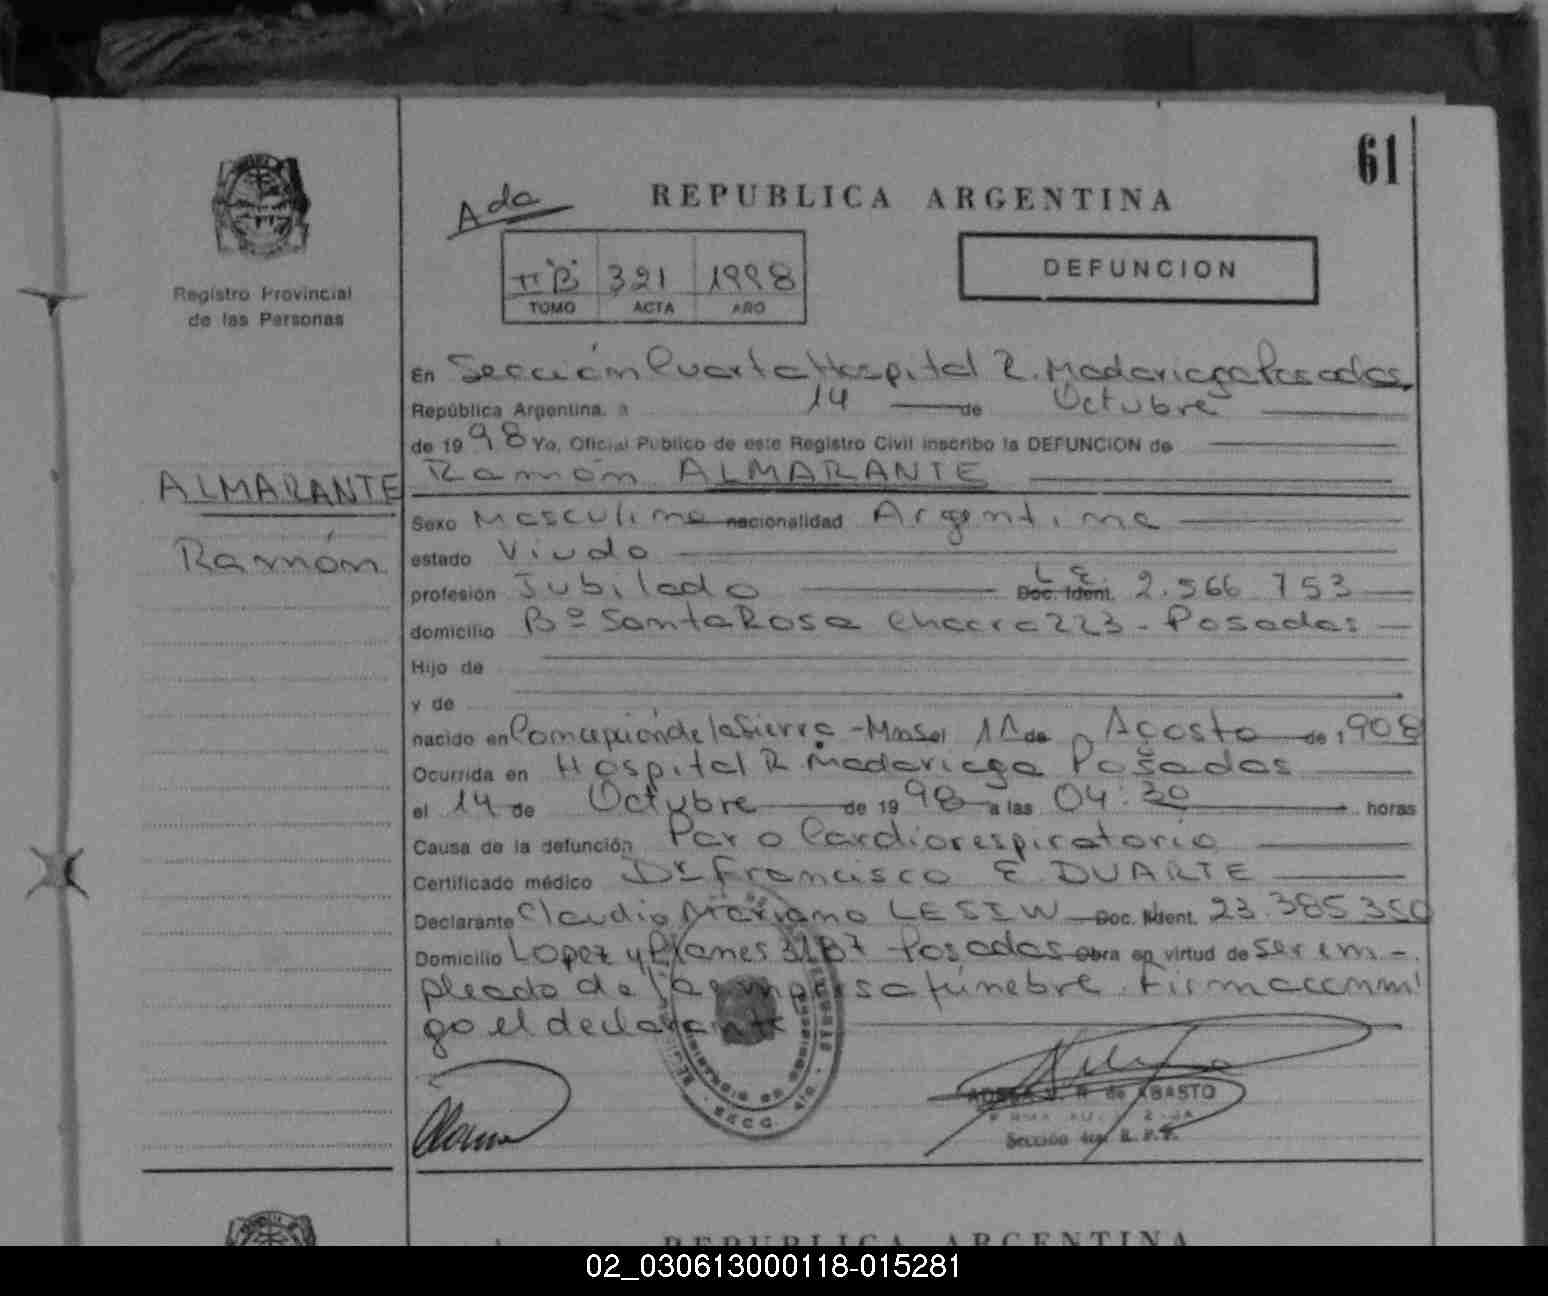 61
Ada
REPUBLICA ARGENTINA
Registro Provincial
de las Personas
DEFUNCION
"B" 321 1998
TOMO ACTA AÑO
En Sección Cuarta Hospital R. Madariaga Posadas
República Argentina, a 14 de Octubre
de 1998 Yo, Oficial Público de este Registro Civil inscribo la DEFUNCION de
Ramón ALMARANTE
ALMARANTE
Ramón
Sexo Masculino nacionalidad Argentina
estado Viudo
profesión Jubilado L.E. Doc. Ident. 2.566.753
domicilio Bº Santa Rosa Chacra 223 - Posadas
Hijo de
y de
nacido en Concepción de la Sierra - Mnes el 11 de Agosto de 1908
Ocurrida en Hospital R. Madariaga Posadas
el 14 de Octubre de 1998 a las 04:30 horas
Causa de la defunción Paro Cardiorespiratorio
Certificado médico Dr Francisco E. DUARTE
Declarante Claudio Mariano LESIW Doc. Ident. 23.385.350
Domicilio Lopez y Planes 3187 Posadas Obra en virtud de ser em-
pleado de la empresa fúnebre. Firma conmi
go el declarante
de ABASTO
Sección 4ta. R. P. P.
REPUBLICA ARGENTINA
02_030613000118-015281